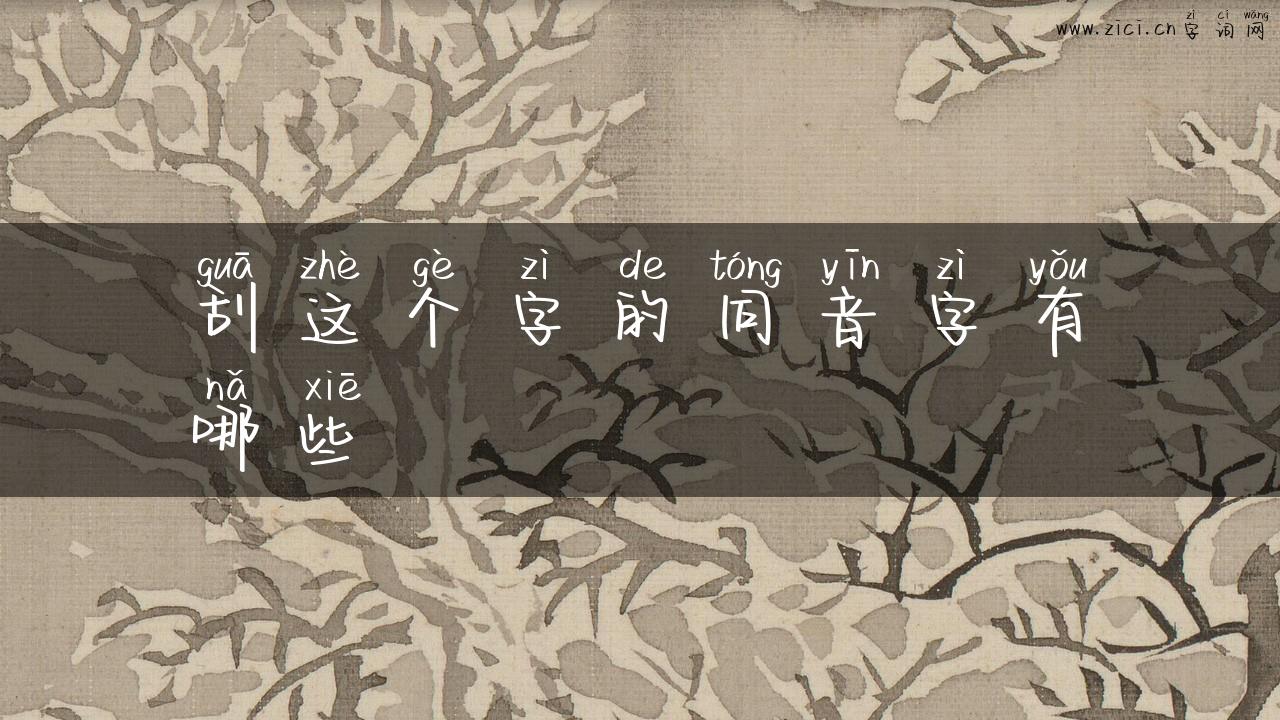 zì cí wǎng
www.zici.cn字词网
guā zhè gè zì de tóng yīn zì yǒu
刮这个字的同音字有
nǎ xiē
哪些